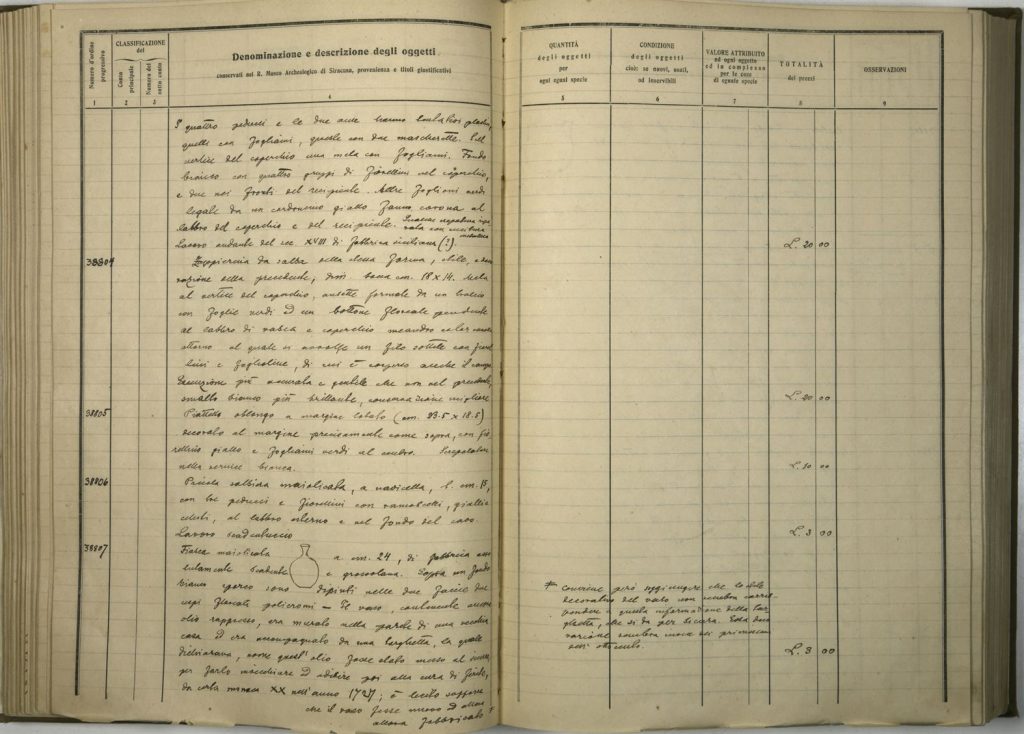 Numero d'ordine progressivo
CLASSIFICAZIONE del
Conto principale
Numero del sotto conto
Denominazione e descrizione degli oggetti
conservati nel R. Museo Archeologico di Siracusa, provenienza e titoli giustificativi
QUANTITÀ
degli oggetti
per
ogni ugual specie
CONDIZIONE
degli oggetti
cioè: se nuovi, usati,
od inservibili
VALORE ATTRIBUITO
ad ogni oggetto
od in complesso
per le cose
di eguale specie
TOTALITÀ
dei prezzi
OSSERVAZIONI
1 2 3 4 5 6 7 8 9
I quattro peducci e le due anse hanno
quelli con fogliami, queste con due mascherette. Sul
vertice del coperchio una mela con fogliami. Fondo
bianco con quattro gruppi di fiorellini nel coperchio,
e due nei fronti del recipiente. Altre foglioni verdi
legate da un cordoncino giallo fanno corona al
labbro del coperchio e del recipiente.
Lavoro andante del sec. XVIII di fabbrica siciliana (?).
L. 20 00
38804
Zuppierina da salse della stessa forma, stile, e
razione della precedente; dim. bocca cm. 18 x 14. Mela
al vertice del coperchio, ansette formate da un
con foglie verdi ed un bottone floreale pendente
al labbro di vasca e coperchio meandro
attorno al quale si avvolge un filo sottile con
lini e foglioline, di cui è cosparso anche il campo
Esecuzione più accurata e gentile che non nel precedente,
smalto bianco più brillante, conservazione migliore
L. 20 00
38805
Piattello oblungo a margine lobato (cm. 23.5 x 18.5)
decorato al margine precisamente come sopra, con
rellino giallo e fogliami verdi al centro. Screpolature
nella vernice bianca.
L. 10 00
38806
Piccola salsiera maiolicata, a navicella, l. cm.
con tre peducci e fiorellini con ramoscelli, gialli e
celesti, al labbro esterno e nel fondo del cavo
Lavoro scadentuccio
L. 3 00
38807
Fiasca maiolicata a cm. 24, di fabbrica
lutamente scadente e grossolana. Sopra un fondo
bianco sporco sono dipinti nelle due faccie due
cespi floreali policromi – Il vaso, contenente ancora
olio rappreso, era murato nella parete di una vecchia
casa ed era accompagnato da una targhetta, la quale
dichiarava, come quest'olio fosse stato messo al
per farlo invecchiare ed adibire poi alla cura di ferite,
da certa monaca XX nell'anno 1727; è lecito supporre
che il vaso fosse nuovo ed
allora fabbricato *
* Conviene però soggiungere che lo stile
decorativo del vaso non sembra corri-
spondere a questa informazione della tar-
ghetta, che si dà per sicura. Essa deco-
razione sembra invece dei primissimi
dell'ottocento.
L. 3 00